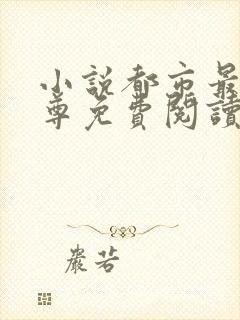 小說都市最
尊免費閱讀
嚴苦